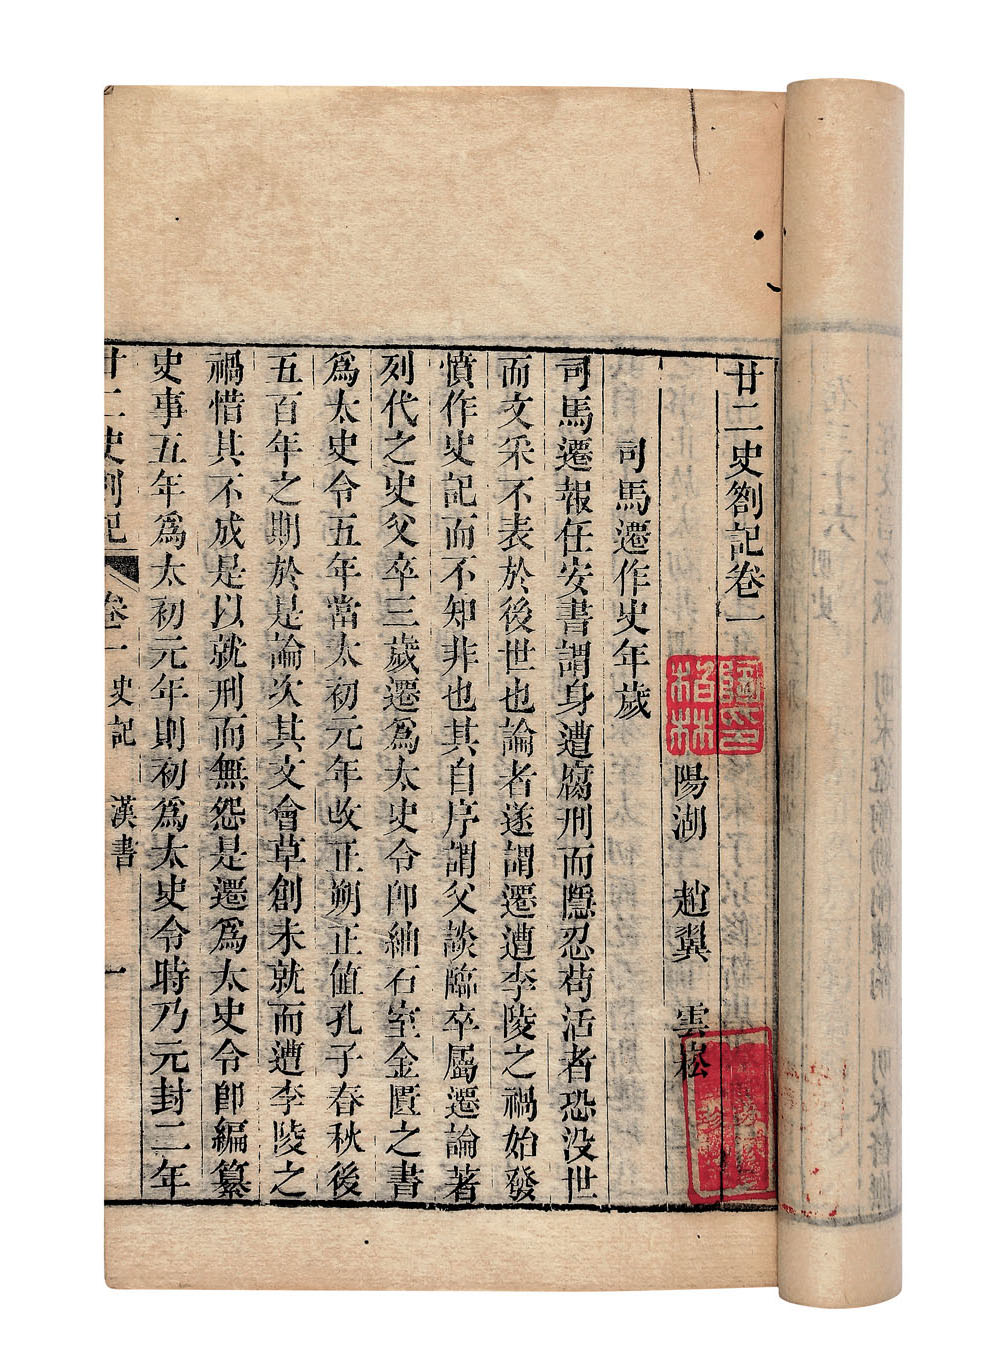 廿二史劄記卷一
陽湖 趙翼 雲崧
司馬遷作史年歲
司馬遷報任安書謂身遭腐刑而隱忍苟活者恐没世
而文采不表於後世也論者遂謂遷遭李陵之禍始發
憤作史記而不知非也其自序謂父談臨卒屬遷論著
列代之史父卒三歲遷爲太史令卽紬石室金匱之書
爲太史令五年當太初元年改正朔正值孔子春秋後
五百年之期於是論次其文會草創未就而遭李陵之
禍惜其不成是以就刑而無怨是遷爲太史令卽編纂
史事五年爲太初元年則初爲太史令時乃元封二年
廿二史劄記 卷一 史記 漢書 一